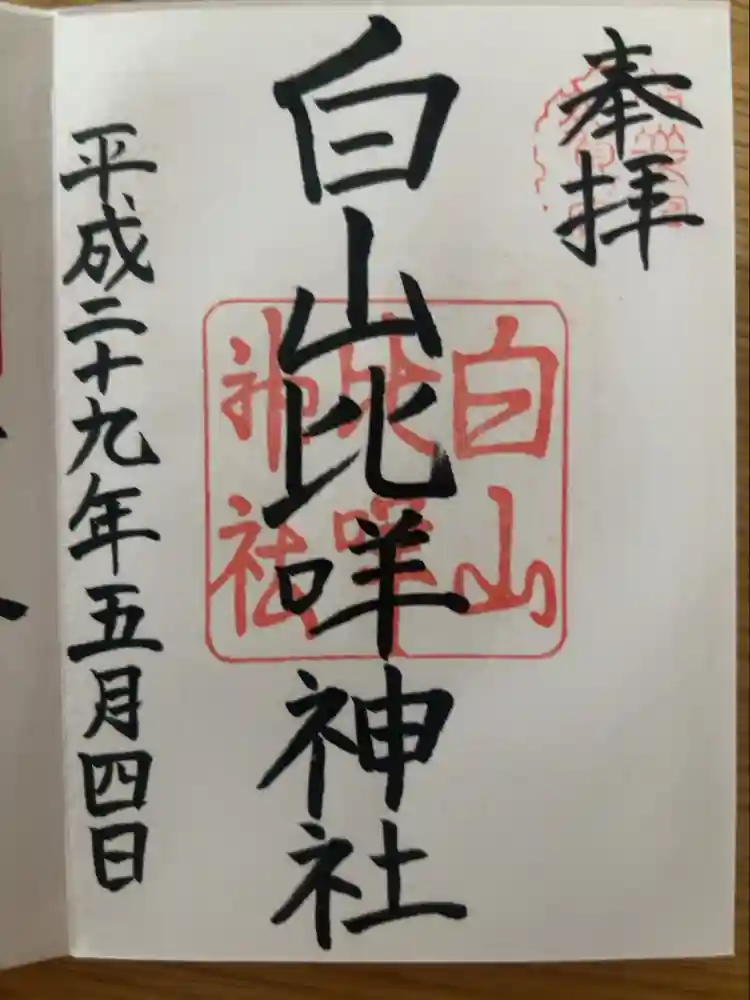 奉拝
白山比咩神社
白山
比咩
神社
平成二十九年五月四日